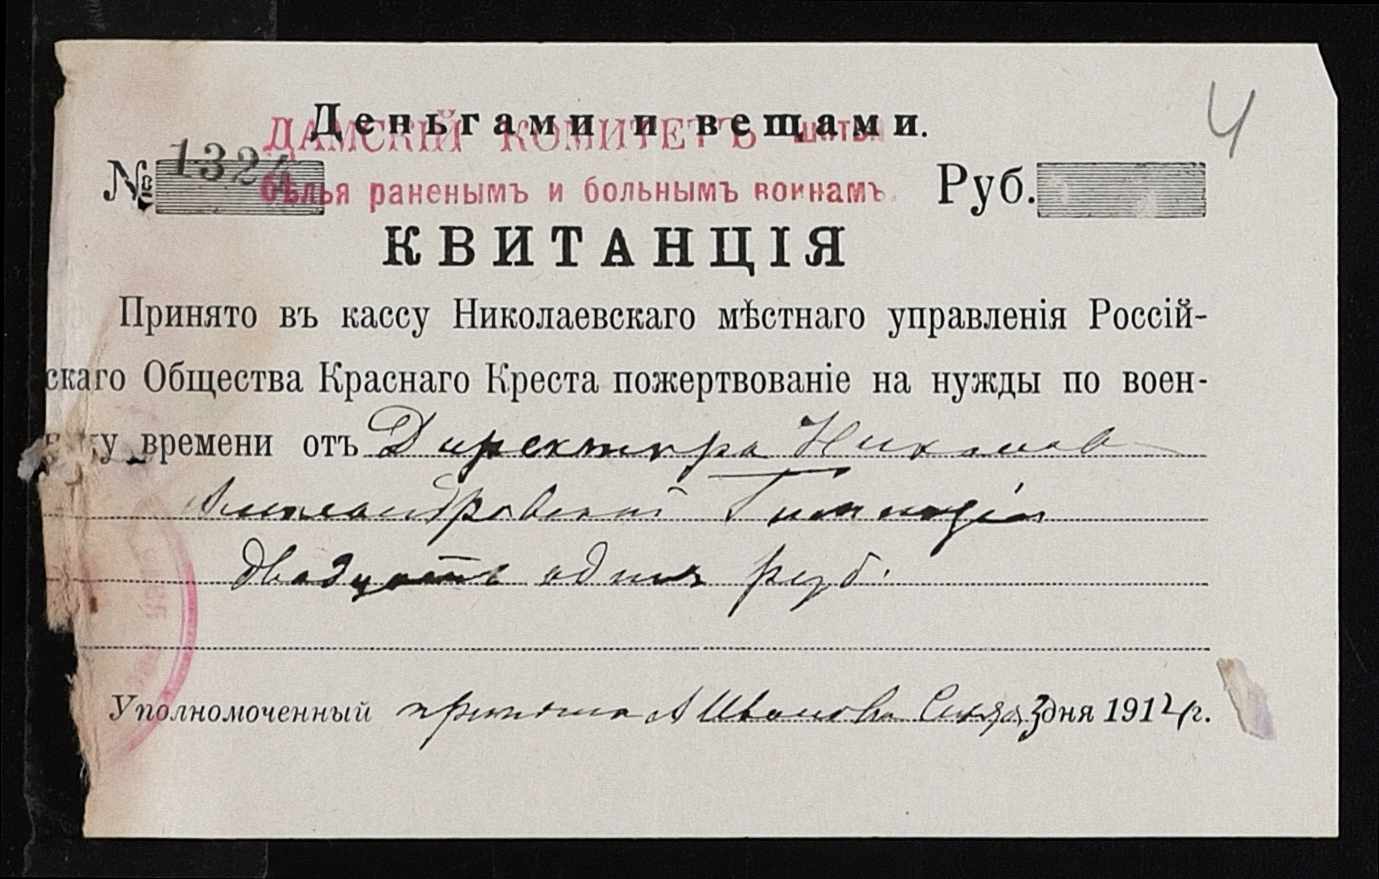 4
Деньгами и вещами.
ДАМСКІЙ КОМИТЕТЪ шитья
№ 1324
бѣлья раненымъ и больнымъ воинамъ.
Руб.
КВИТАНЦІЯ
Принято въ кассу Николаевскаго мѣстнаго управленія Россій-
скаго Общества Краснаго Креста пожертвованіе на нужды по воен-
ному времени отъ Директора Никол
Александровской Гимназіи
двадцать одинъ руб.
Уполномоченный приняла А Иванова 3 дня 191 г.